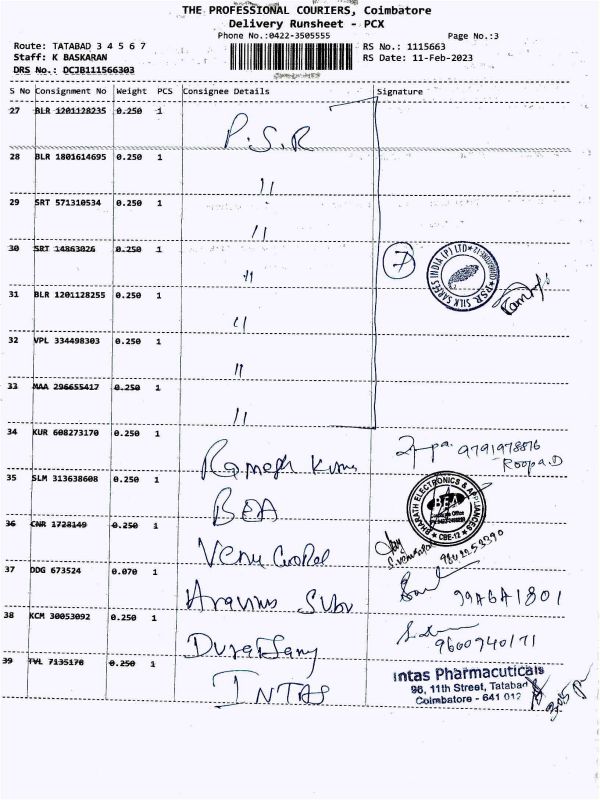 THE PROFESSIONAL COURIERS, Coimbatore
Delivery Runsheet - PCX
Phone No.:0422-3505555
Page No.:3
Route: TATABAD 3 4 5 6 7
RS No.: 1115663
Staff: K BASKARAN
RS Date: 11-Feb-2023
DRS No.: DCJB111566303
S No Consignment No Weight PCS Consignee Details Signature
27 BLR 1201128235 0.250 1 P.S.R
28 BLR 1801614695 0.250 1 "
29 SRT 571310534 0.250 1 "
30 SRT 14863026 0.250 1 "
7
P.S.R. SILK SAREES INDIA (P) LTD
31 BLR 1201128255 0.250 1 "
32 VPL 334498303 0.250 1 "
33 MAA 296655417 0.250 1 "
34 KUR 608273170 0.250 1 Ramesh Kumar
9791978876
Roopa.D
35 SLM 313638608 0.250 1 BEA
BHARATH ELECTRONICS & APPLIANCES
BEA
CBE-12
36 CNR 1728149 0.250 1 Venu Gopal
37 DDG 673524 0.070 1 Aravind Subr
38 KCM 30053092 0.250 1 Duraisamy
9600940171
39 TVL 7135170 0.250 1 INTAS
Intas Pharmaceuticals
96, 11th Street, Tatabad
Coimbatore - 641 012
3:05 pm